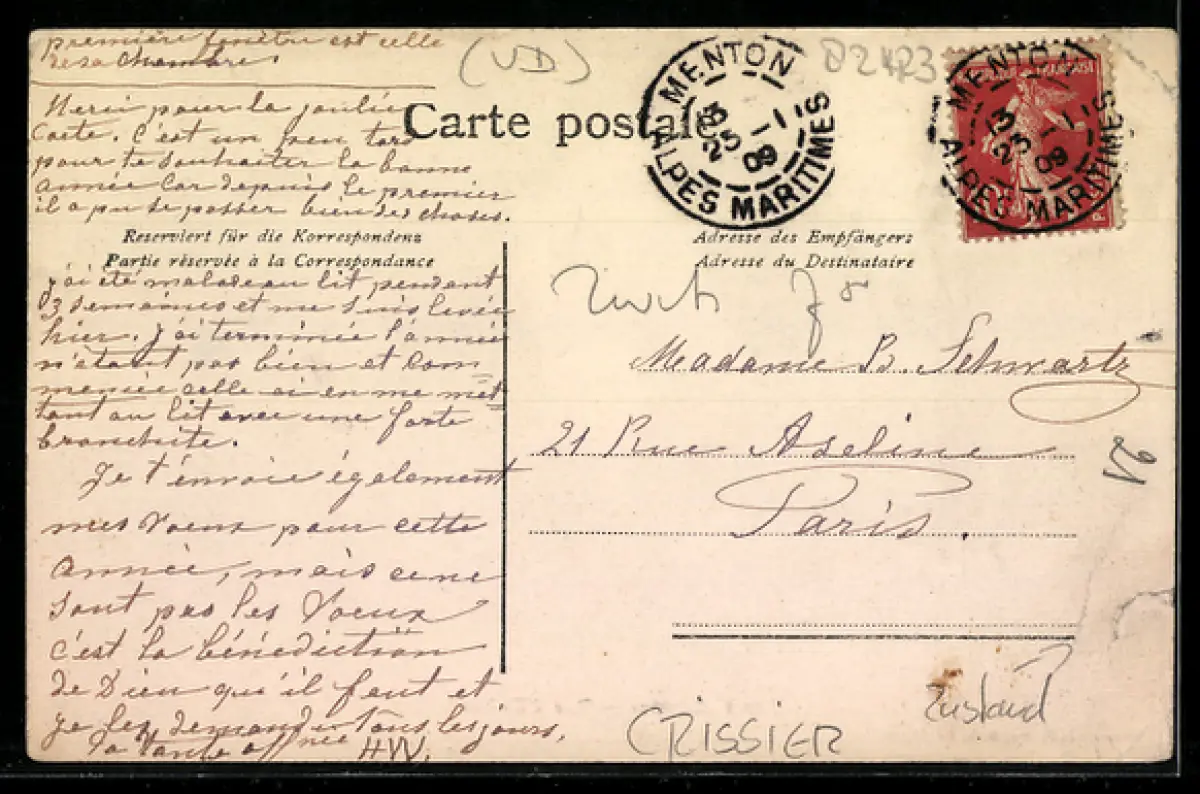 première fenêtre est celle
de sa chambre.
(VD)
Merci pour la joulie
Carte. C'est un peu tard
pour te souhaiter la bonne
année Car depuis le premier
il a pu se passer bien des choses.
Carte postale
MENTON
13
23 -1
09
ALPES MARITIMES
MENTON
13
23 -1
09
ALPES MARITIMES
Reserviert für die Korrespondenz
Partie réservée à la Correspondance
j'ai été malade au lit pendant
3 semaines et me suis levée
hier. J'ai terminée l'année
n'étant pas bien et com
mencée celle ci en me met
tant au lit avec une forte
bronchite.
Je t'envoie également
mes voeux pour cette
année, mais ce ne
sont pas les voeux
c'est la bénédiction
de Dieu qu'il faut et
je les demande tous les jours,
Ta tante
HW.
Adresse des Empfängers
Adresse du Destinataire
Madame B. Schwartz
21 Rue Aseline
Paris.
21
Zustand
CRISSIER